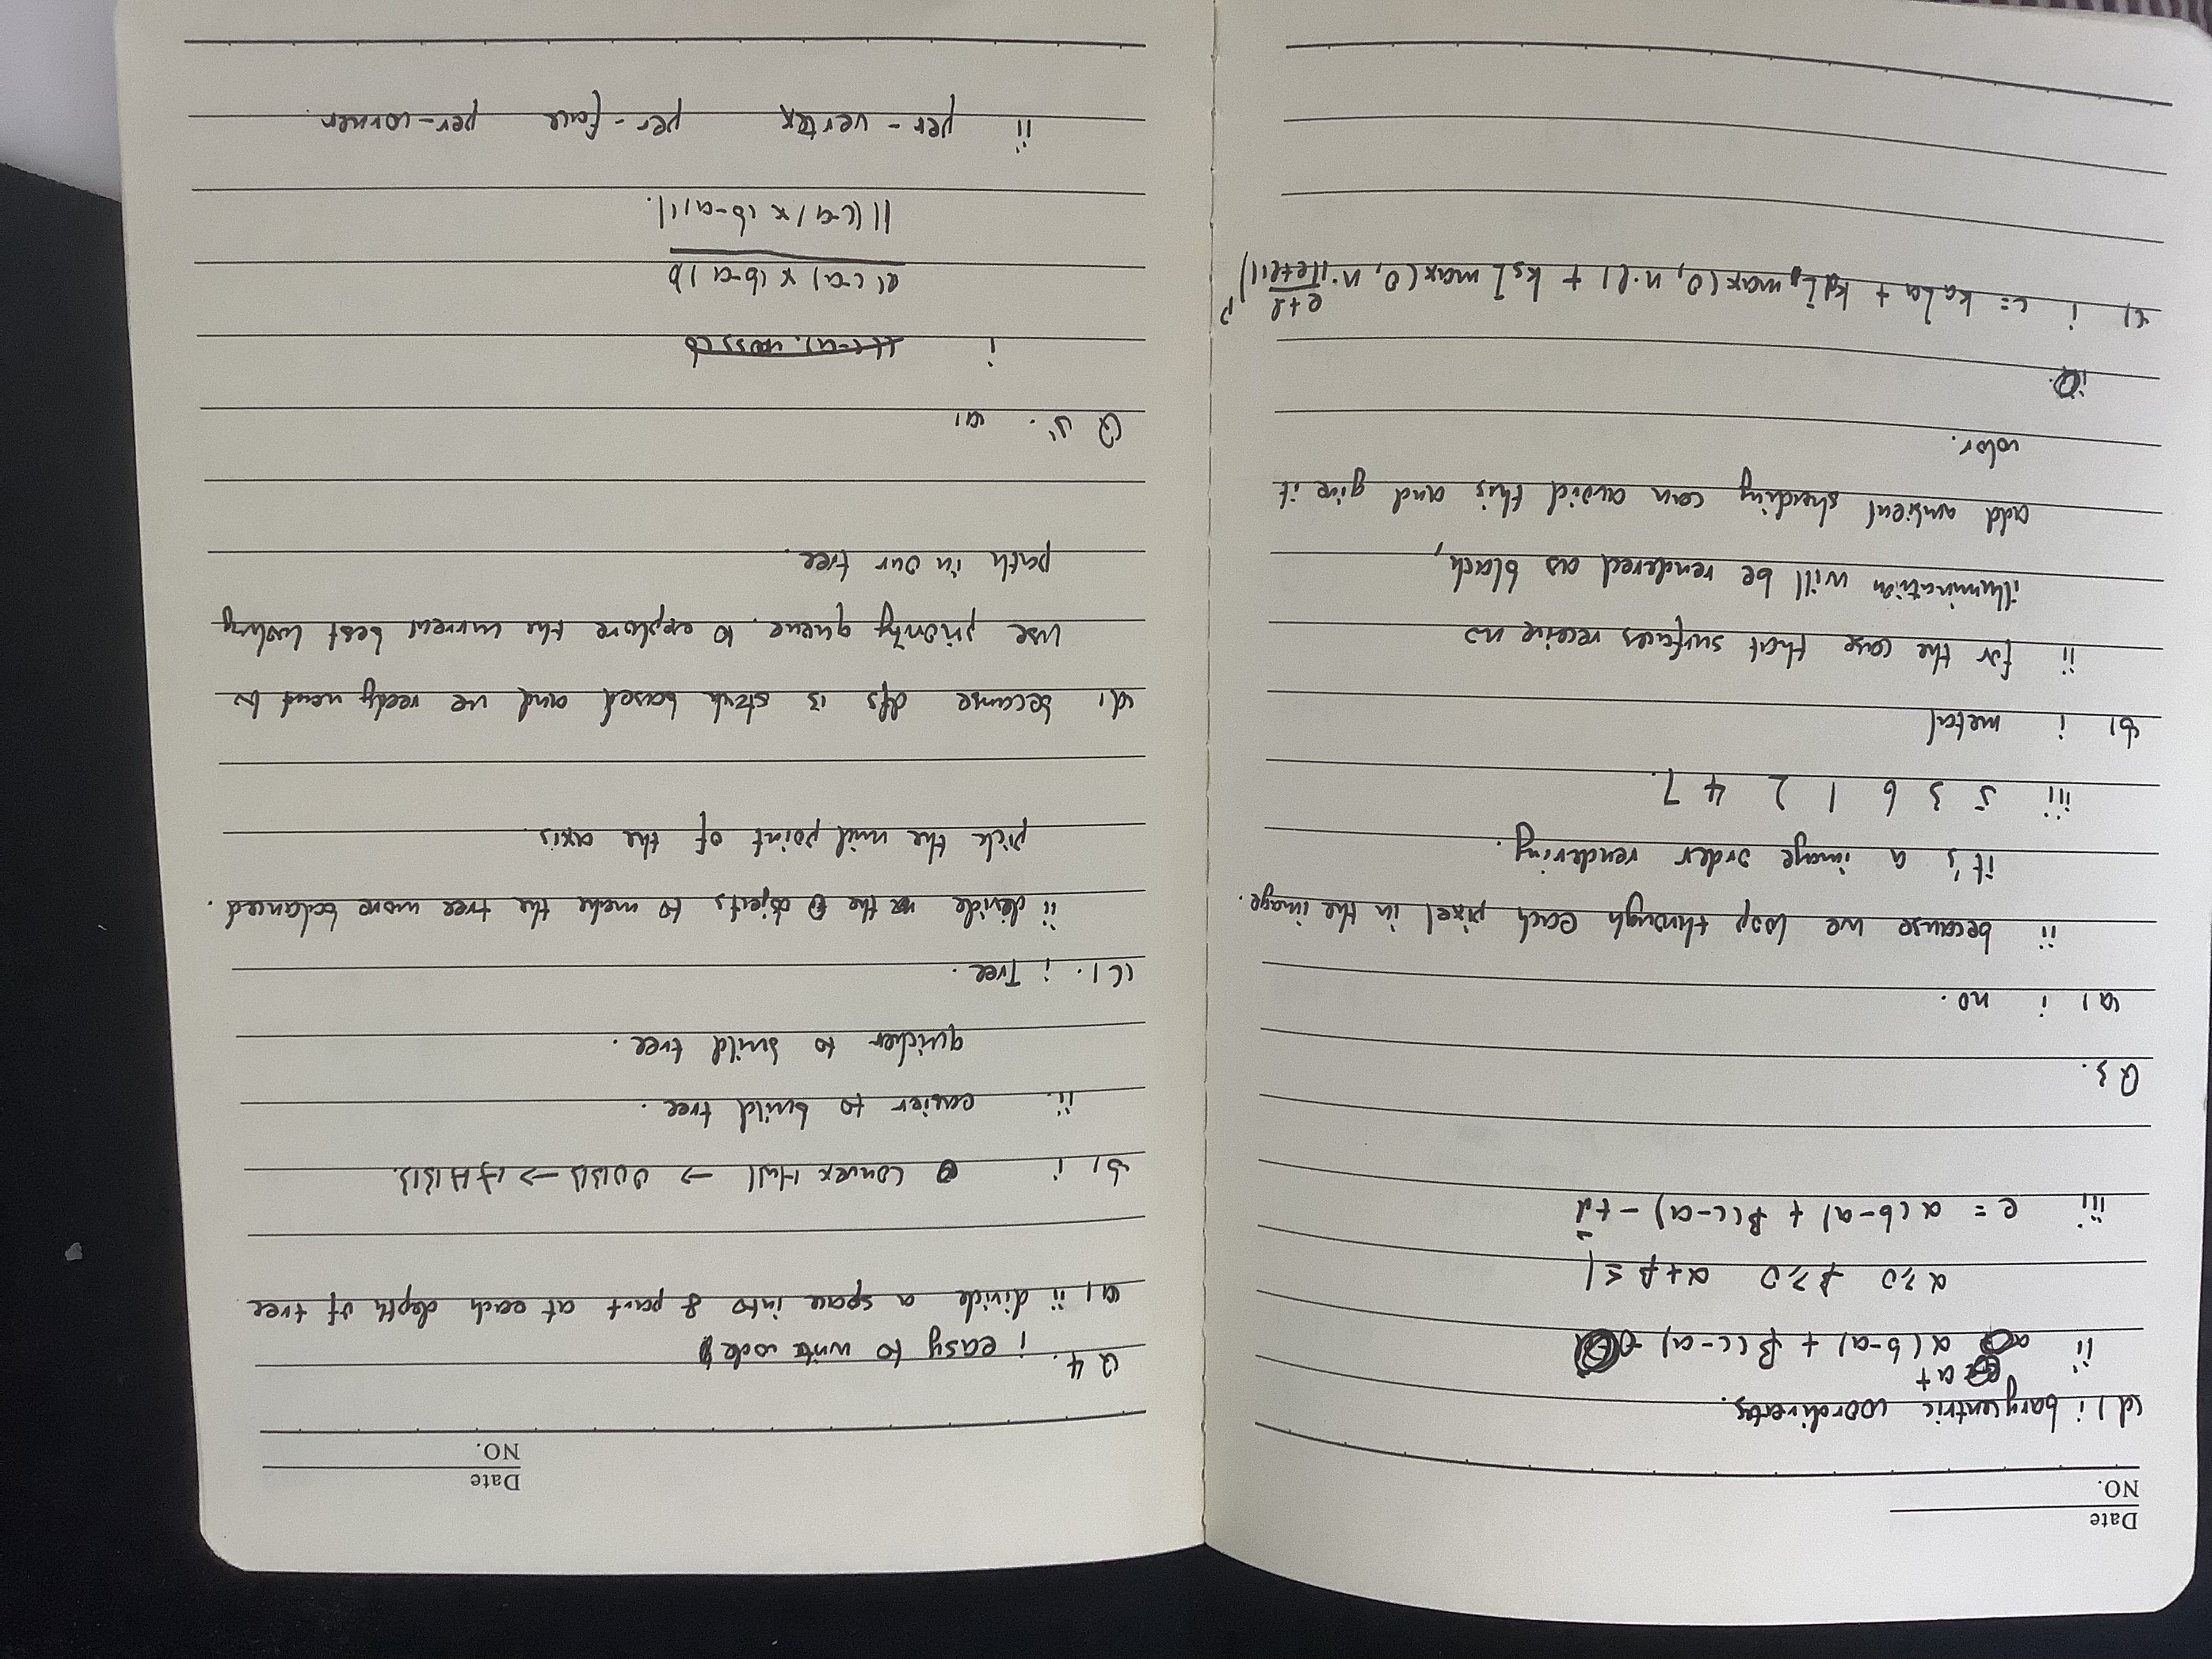 Date
NO.
(d) i barycentric coordinates.
a+
ii α(b-a) + β(c-a)
α≥0 β≥0 α+β≤1
iii e = α(b-a) + β(c-a) - td⃗
Q3.
(a) i no.
ii because we loop through each pixel in the image.
it's a image order rendering.
iii 5 3 6 1 2 4 7.
(b) i metal
ii for the case that surfaces receive no
illumination will be rendered as black,
add ambient shading can avoid this and give it
color.
(c) i c= kaIa + kdI max(0, n·l) + ksI max(0, n· (e+l)/||e+l||)^p
Date
NO.
Q4. i easy to write code
(a) ii divide a space into 8 part at each depth of tree
(b) i Convex Hull → OOBB → AABB.
ii. easier to build tree.
quicker to build tree.
(C). i Tree.
ii divide the objects to make the tree more balanced.
pick the mid point of the axis
(d) because dfs is stack based and we need to
use priority queue. to explore the current best looking
path in our tree.
Q5. (a)
i
(c-a) x (b-a)
||(c-a) x (b-a)||.
ii per-vertex per-face per-corner.